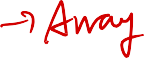 → Away